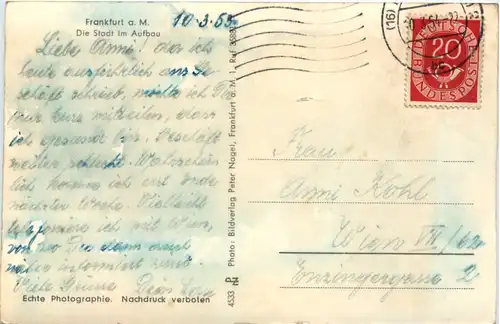 Frankfurt a. M.
Die Stadt im Aufbau
10.3.53
Liebe Anni! Da ich
heute ausführlich ans Ge-
schäft schrieb, möchte ich Dir
nur kurz mitteilen, dass
ich gesund bin. Geschäft
weiter schlecht. Wahrschein-
lich komme ich erst Ende
nächster Woche. Vielleicht
telefoniere ich mit Wien,
von wo Du dann auch
näher informiert wirst.
Viele Grüsse
Echte Photographie. Nachdruck verboten
4533
Photo: Bildverlag Peter Nagel, Frankfurt a. M. 1, Ruf
(16)
20
DEUTSCHE BUNDESPOST
Frau
Anni Kohl
Wien VII/62
Enzingergasse 2